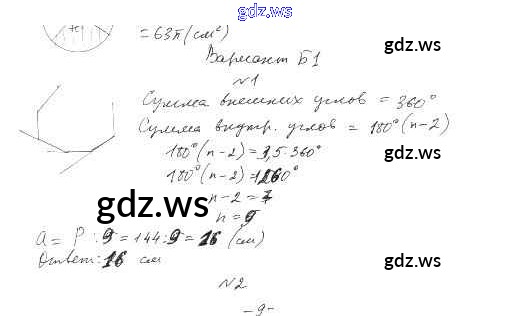 gdz.ws
= 63π (см²)
gdz.ws
Вариант Б1
№1
Сумма внешних углов = 360°
Сумма внутр. углов = 180°(n-2)
180°(n-2) = 3,5·360°
gdz.ws
180°(n-2) = 1260°
n-2 = 7
gdz.ws
n = 9
a = P : 9 = 144 : 9 = 16 (см)
Ответ: 16 см
gdz.ws
№2
- 9 -